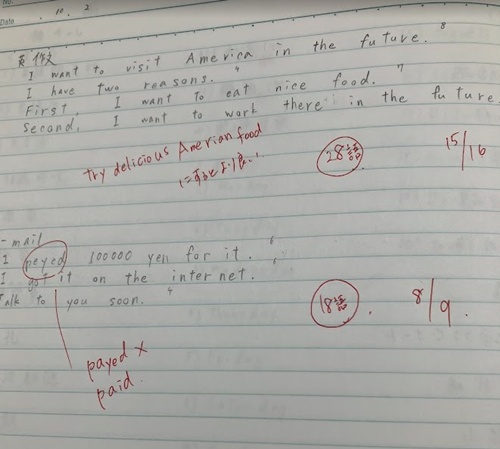 No.
Date 10. 2
英検
I want to visit America in the future. 8
I have two reasons. 4
First, I want to eat nice food. 7
Second, I want to work there in the future
try delicious Amerian food
28語 15/16
-mail
I peyed 100000 yen for it. 6
I got it on the internet. 6
Talk to you soon. 4
18語. 8/9.
payed ×
paid.